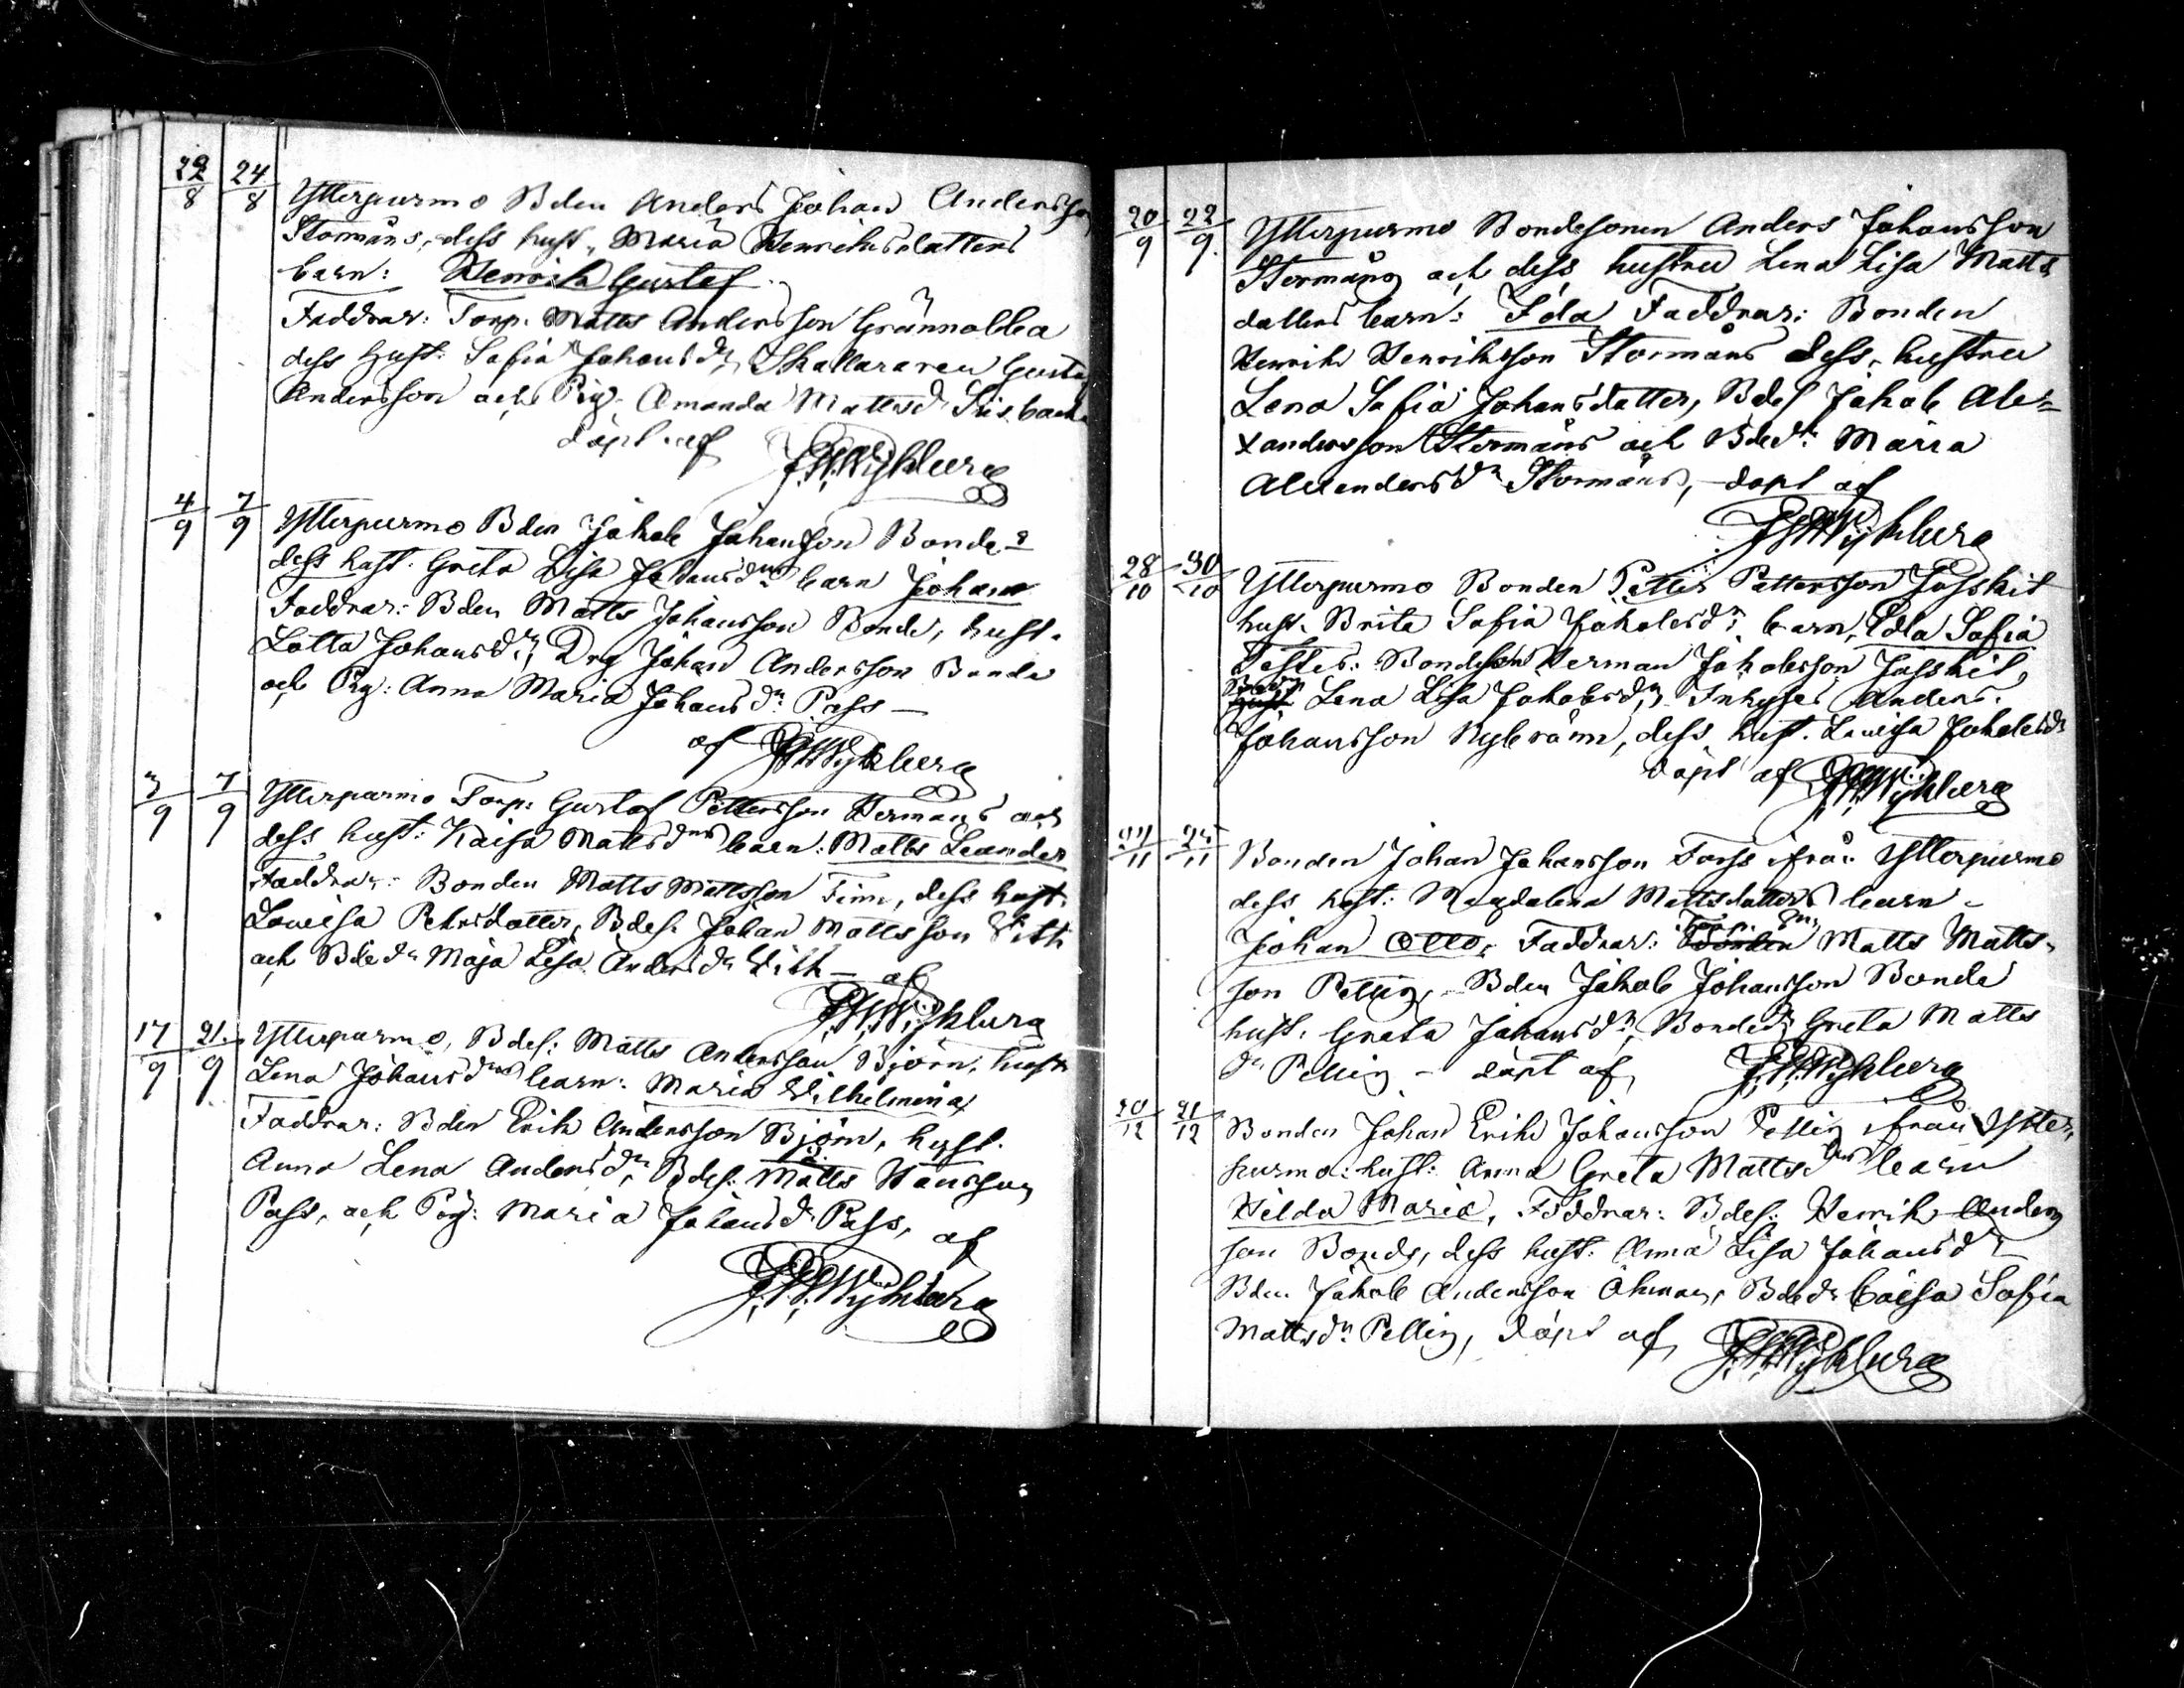 22/8 24/8 Ytterpurmo Bden Anders Johan Andersson
Stormåns, dess hust. Maria Henriksdatters
barn: Henrik Gustaf
Faddrar: Torp. Matts Andersson Grännabba
dess Hust: Sofia Johansdr, Skallararen Gustaf
Andersson och Pig. Amanda Mattsdr Sisbacka
döpt af J. W. Nybberg
4/9 7/9 Ytterpurmo Bden Jakob Johansson Bonde
dess hust. Greta Lisa Johansdrs barn Johan
Faddrar: Bden Matts Johansson Bonde, hust.
Lotta Johansdr, Drg Johan Andersson Bonde
och Pig: Anna Maria Johansdr Pass —
af
3/9 7/9 Ytterpurmo Torp: Gustaf Pettersson Hermans och
dess hust: Kaisa Mattsdrs barn: Matts Leander
Faddrar: Bonden Matts Mattsson Finn, dess hust.
Lovisa Petersdotter, Bdes. Johan Mattsson Lith
och Bdedr Maja Lisa Andersdr Lith — af
17/9 21/9 Ytterpurmo, Bdes: Matts Andersson Björn, hust
Lena Johansdrs barn: Maria Wilhelmina
Faddrar: Bden Erik Andersson Björn, hust.
Anna Lena Andersdr, Bdes: Matts Hansson
Pass, och Pig: Maria Johansdr Pass, af
20/9 22/9 Ytterpurmo Bondesonen Anders Johansson
Stormåns och dess hustru Lena Lisa Matts
datters barn: Ida Faddrar: Bonden
Henrik Henriksson Stormåns dess hustru
Lena Sofia Johansdatter, Bdes Jakob Ale=
xandersson Stormåns och Bdedr Maria
Alexandersdr Stormåns, döpt af
28/10 30/10 Ytterpurmo Bonden Petter Pettersson Josskit
hust. Brita Sofia Jakobsdr, barn, Edla Sofia
Testes: Bondeson Herman Jakobsson Josskit,
Lena Lisa Jakobsdr, Inhyses Anders
Johansson Nybränn, dess hust. Lovisa Jakobsdr
döpt af
/11 /11 Bonden Johan Johansson Forss ifrån Ytterpurmo
dess hust: Magdalena Mattsdatters barn -
Johan Otto, Faddrar: Bonden Matts Matts-
son Pelling, Bden Jakob Johansson Bonde
hust. Greta Johansdr, Bondedr Greta Matts
dr Pelling - döpt af
/12 21/12 Bonden Johan Erik Johansson Pelling ifrån Ytter,
purmo: hust: Anna Greta Mattsdrs barn
Hilda Maria, Faddrar: Bdes: Henrik Anders
son Bonde, dess hust: Anna Lisa Johansdr
Bden Jakob Andersson Öhman, Bdedr Caisa Sofia
Mattsdr Pelling, döpt af